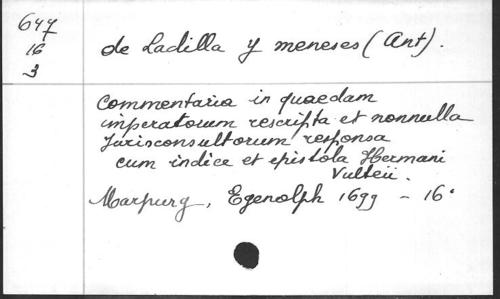 647
16
3
de Ladilla y meneses (Ant).
Commentaria in quaedam
imperatorum rescripta et nonnulla
Jurisconsultorum responsa
cum indice et epistola Hermani
Vulteii.
Marpurg, Egenolph 1699 - 16°